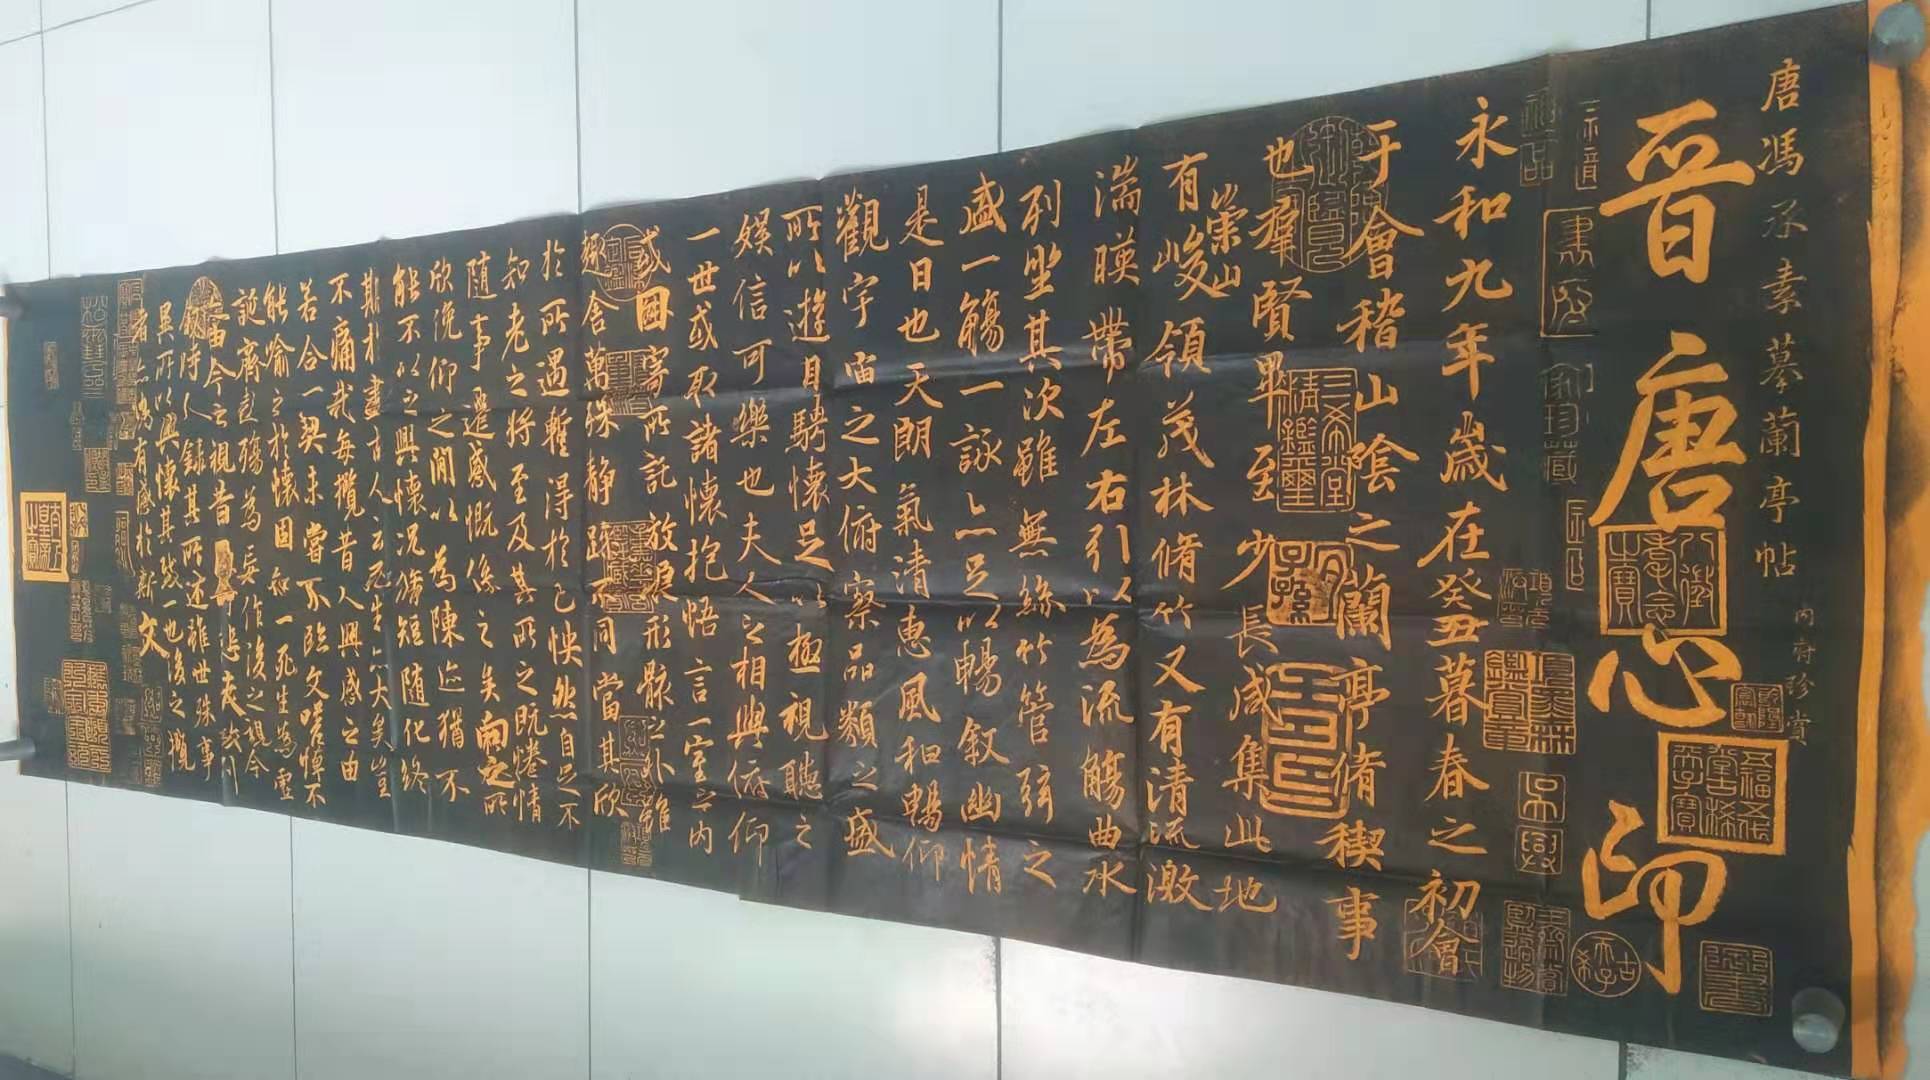 唐馮承素摹蘭亭帖
內府珍賞
晉唐心印
八徵耄念之寶
永和九年歲在癸丑暮春之初會
于會稽山陰之蘭亭脩稧事
三希堂精鑑璽
宜子孫
也羣賢畢至少長咸集此地
有崇山峻領茂林脩竹又有清流激
湍暎帶左右引以為流觴曲水
列坐其次雖無絲竹管弦之
盛一觴一詠亦足以暢叙幽情
是日也天朗氣清惠風和暢仰
觀宇宙之大俯察品類之盛
所以遊目騁懷足以極視聽之
娛信可樂也夫人之相與俯仰
一世或取諸懷抱悟言一室之內
或因寄所託放浪形骸之外雖
趣舍萬殊靜躁不同當其欣
於所遇暫得於己怏然自足不
知老之將至及其所之既惓情
隨事遷感慨係之矣向之所
欣俛仰之閒以為陳迹猶不
能不以之興懷況脩短隨化終
期於盡古人云死生亦大矣豈
不痛哉每攬昔人興感之由
若合一契未嘗不臨文嗟悼不
能喻之於懷固知一死生為虛
誕齊彭殤為妄作後之視今
亦由今之視昔悲夫故列
叙時人錄其所述雖世殊事
異所以興懷其致一也後之攬
者亦將有感於斯文